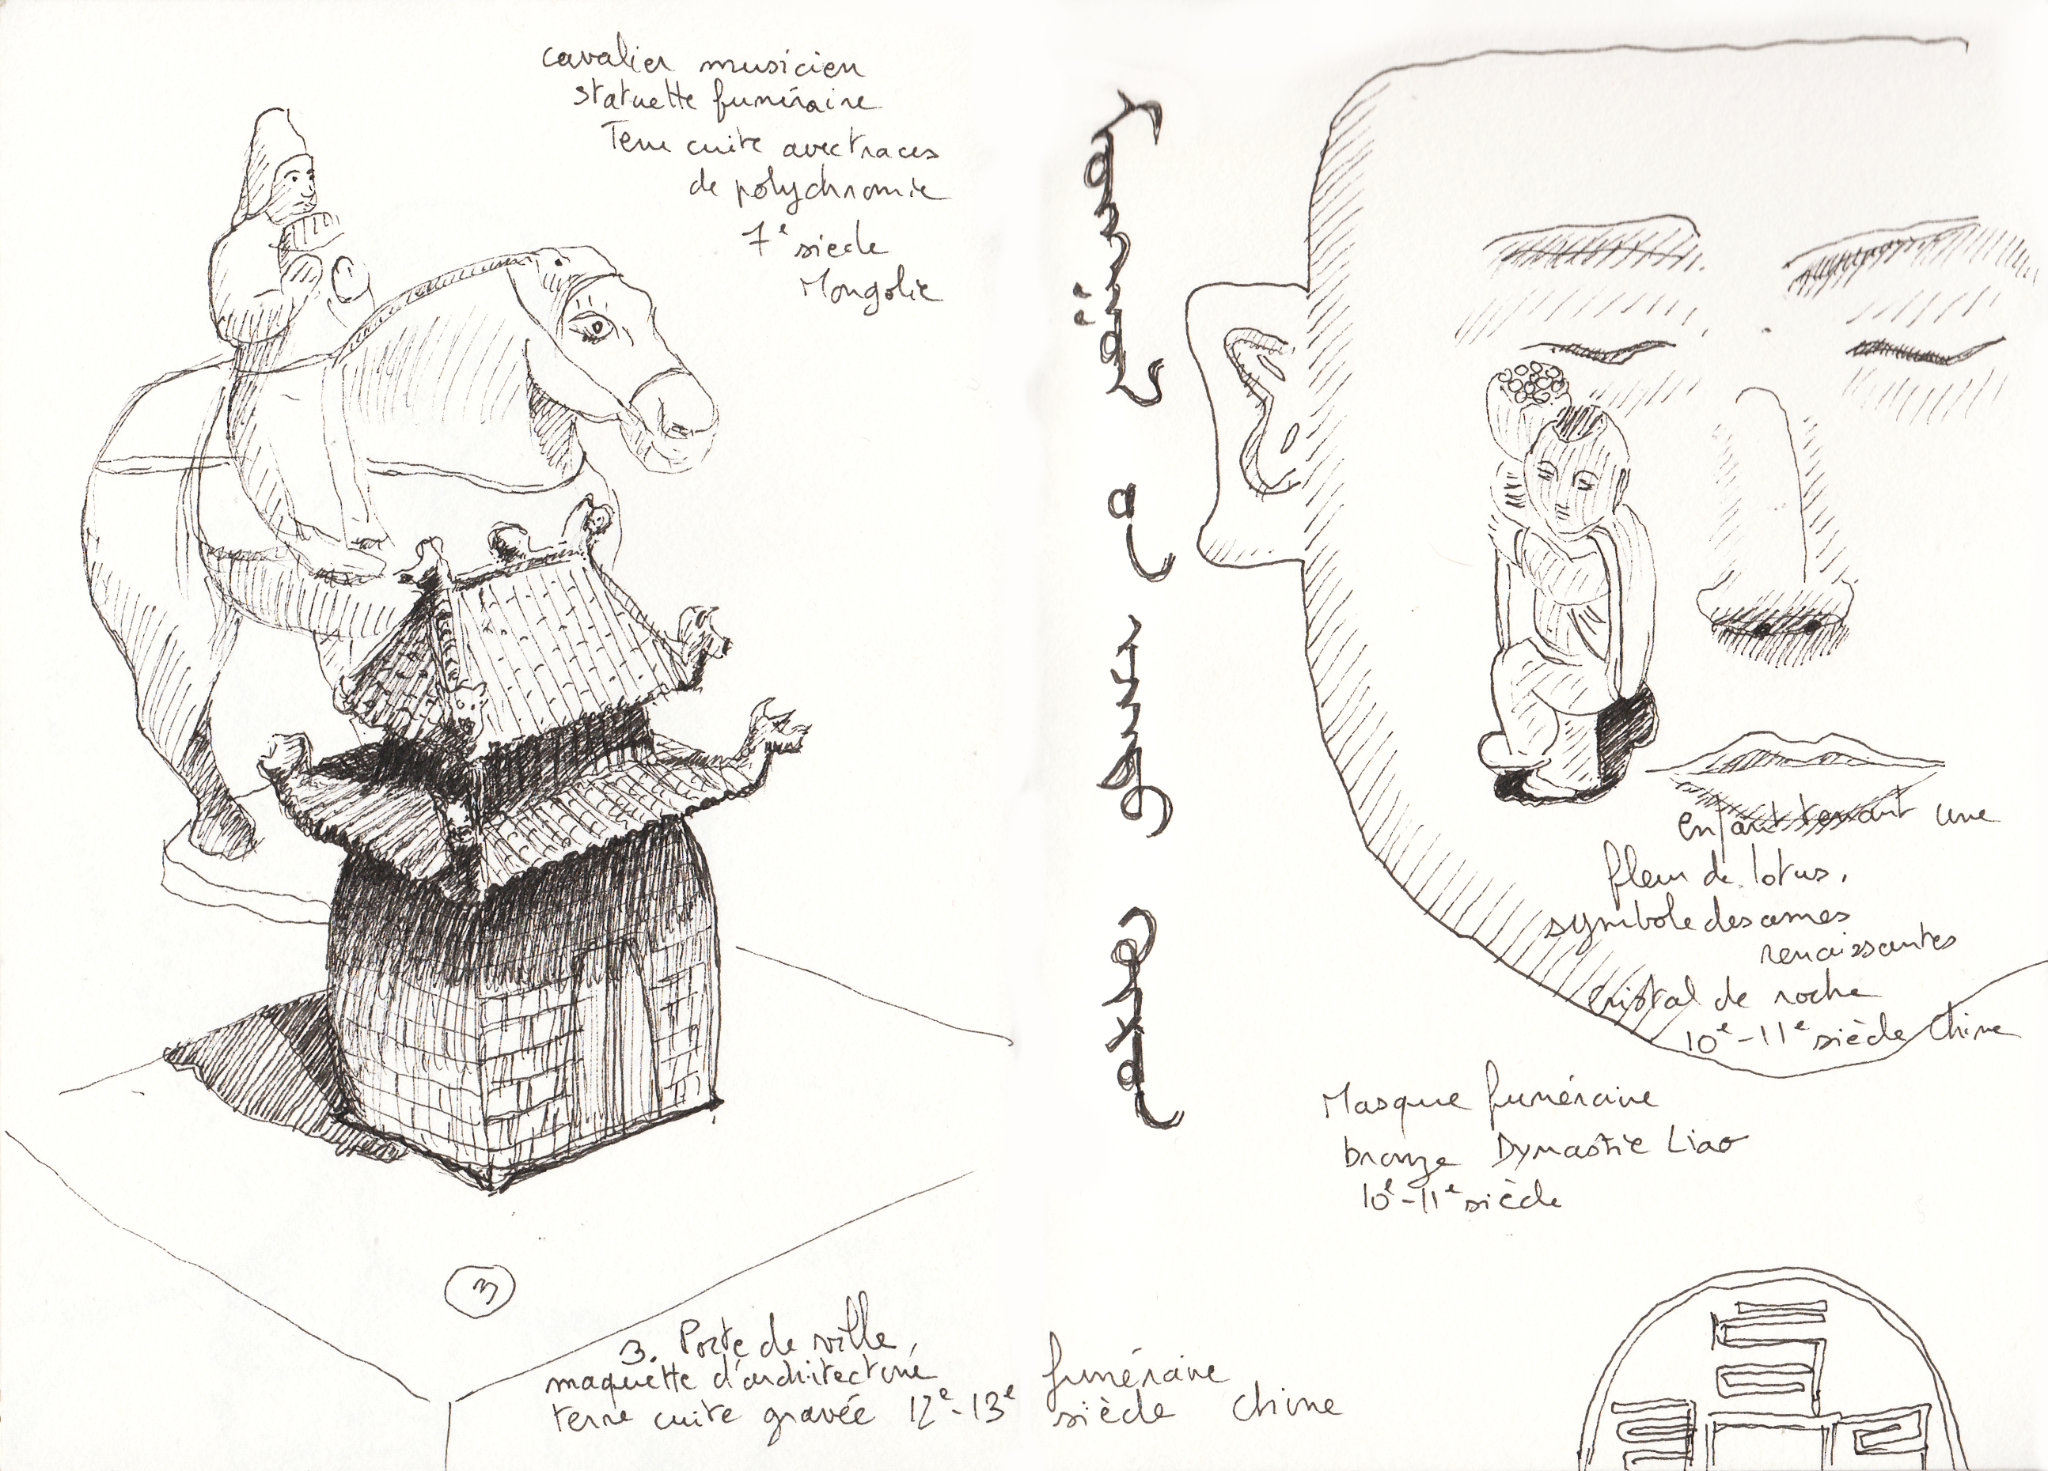 cavalier musicien
statuette funéraire
Terre cuite avec traces
de polychromie
7e siècle
Mongolie
enfant tenant une
fleur de lotus,
symbole des ames
renaissantes
cristal de roche
10e-11e siècle Chine
Masque funéraire
bronze Dynastie Liao
10e-11e siècle
3
3. Porte de ville,
maquette d'architecture funéraire
terre cuite gravée 12e-13e siècle Chine